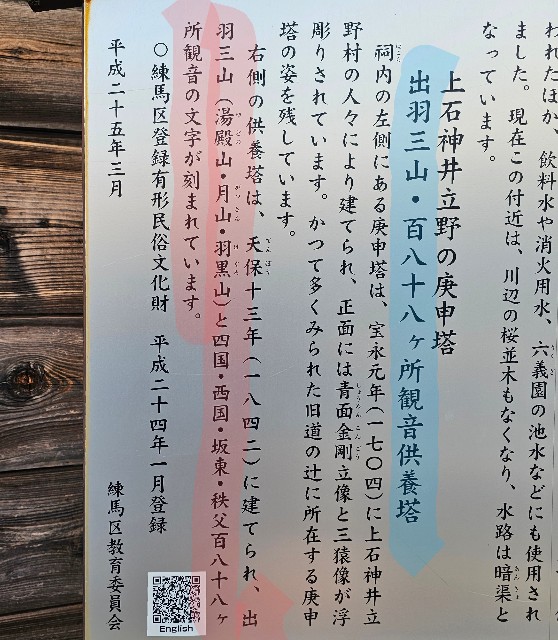 われたほか、飲料水や消火用水、六義園の池水などにも使用され
ました。現在この付近は、川辺の桜並木もなくなり、水路は暗渠と
なっています。
上石神井立野の庚申塔
出羽三山・百八十八ヶ所観音供養塔
祠内の左側にある庚申塔は、宝永元年(一七〇四)に上石神井立
野村の人々により建てられ、正面には青面金剛立像と三猿像が浮
彫りされています。かつて多くみられた旧道の辻に所在する庚申
塔の姿を残しています。
右側の供養塔は、天保十三年(一八四二)に建てられ、出
羽三山(湯殿山・月山・羽黒山)と四国・西国・坂東・秩父百八十八ヶ
所観音の文字が刻まれています。
〇練馬区登録有形民俗文化財 平成二十四年一月登録
平成二十五年三月 練馬区教育委員会
English